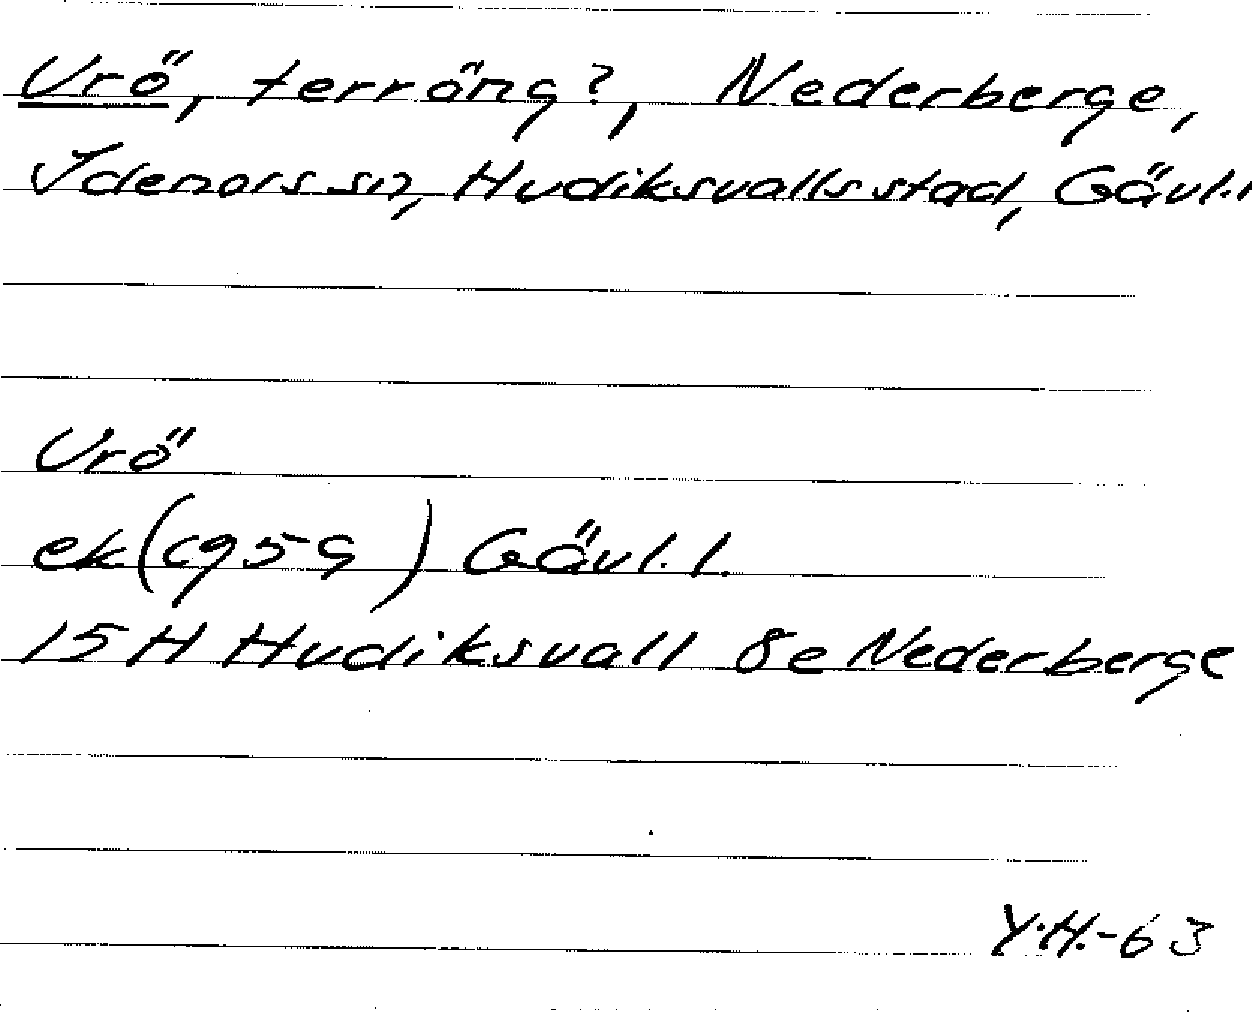 Urö, terräng?, Nederberge,
Idenors sn, Hudiksvalls stad, Gävl.l
Urö
ek(c959) Gävl.l.
15H Hudiksvall 8e Nederberge
Y.H.-63